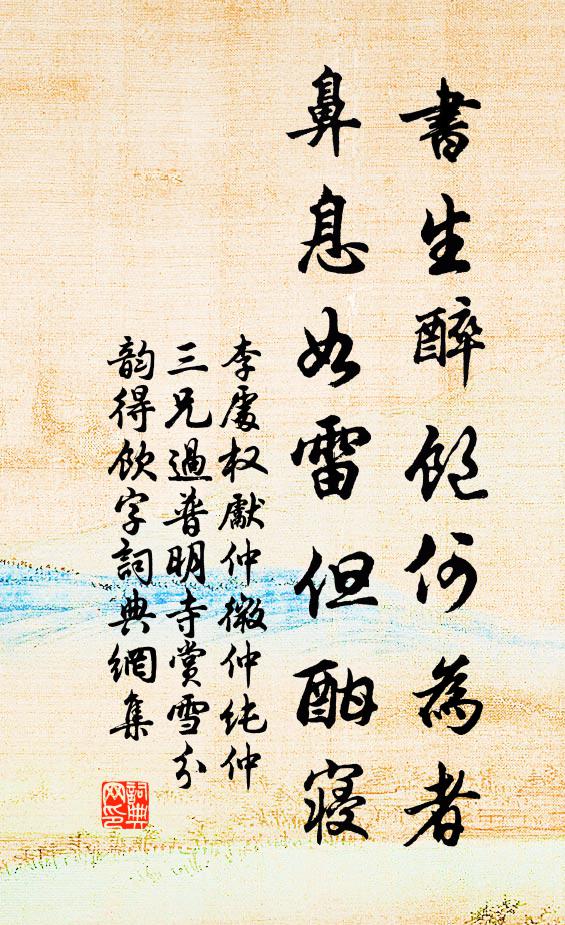 書生醉飽何為者
鼻息如雷但酣寝
李處权獻仲微仲纯仲
三兄過普明寺赏雪分
韵得飲字詞典網集
詞典
网印